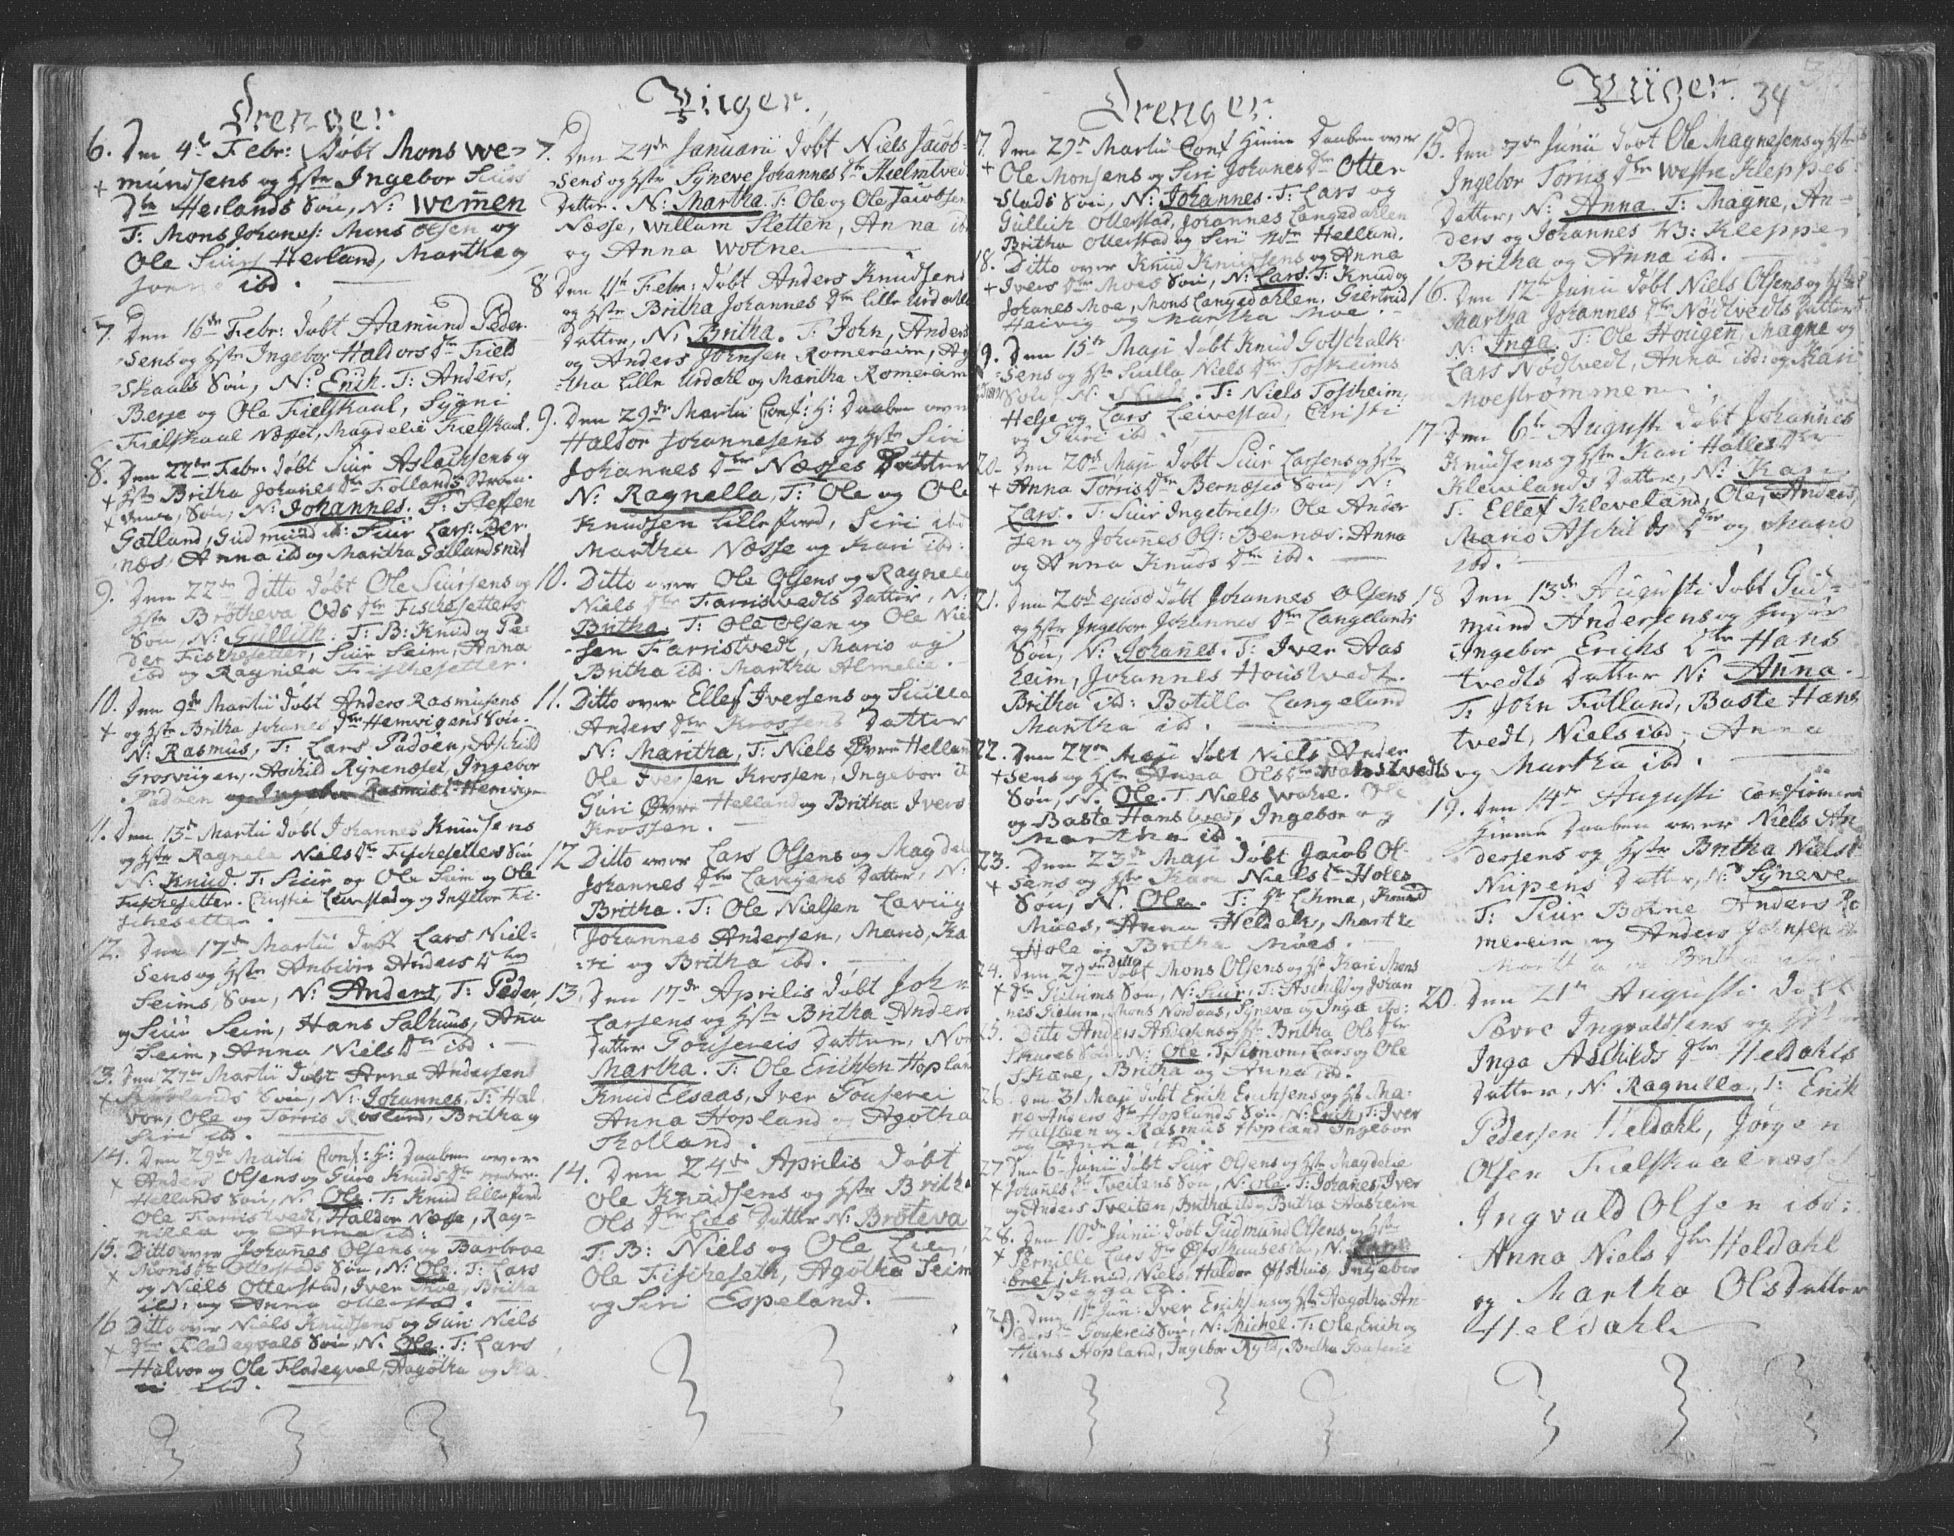 Drenger
6. Den 4de Febr: Døbt Mons We-
mundsens og Hstr Ingebor Siurs
Dtr Herlands Søn, N: Wemen
T: Mons Johanes: Mons Olsen og
Ole Siurs Herland, Martha og
ibd.
7. Den 16de Febr: døbt Aamund Peder
sens og Hstr Ingebor Haldors Dtr Fiels
skaals Søn, N: Erich. T: Anders,
Berje og Ole Fielskaal, Sygni
Fielskaal Næsset, Magdelie Fielskaal.
8. Den 22de Febr: døbt Siur Aslachsens og
Hstr Britha Johanes Dtr Follands Strøm-
mens, Søn, N: Johannes. T: Steffen
Gatland, Gudmund ib: Siur Lars: Ber-
næs, Anna ibd og Martha Gatlandsnes
9. Den 22de Ditto døbt Ole Siursens og
Hstr Brotheva Ods Dtr Fischesetters
Søn, N: Gullich. T: B: Knud og Pe-
der Fischesetter, Siur Seim, Anna
ibd og Ragnila Fischesetter.
10. Den 9de Martii døbt Anders Rasmusens
og Hstr Britha Johanes Dtr Hemvigens Søn.
N: Rasmus, T: Lars Padøen, Aschild
Grosviigen, Aschild Rynenæset, Ingebor
Padøen og Ingebor Rasmus: Hemvigen
11. Den 13de Martii døbt Johannes Knudsens
og Hstr Ragnela Niels Dtr Fischesetters Søn
N: Knud. T: Siur og Ole Seim og Ole
Fischesetter. Christie Leivestad og Ingebor Fi-
schesetter.
12. Den 17de Martii døbt Lars Niel-
sens og Hstr Anbiør Anders Dtr
Seims, Søn, N: Anders, T: Peder
og Siur Seim, Hans Salhuus, Anna
Seim, Anna Niels Dtr ibd.
13. Den 27de Martii døbt Anne Andersens
Søn, N: Johannes, T: Hal-
vor, Ole og Torris Rosland, Britha og
Siri ibd.
14. Den 29de Martii Conf: H: Daaben over
Anders Olsens og Guro Knuds Dtr
Hellands Søn, N. Ole. T: Knud Lillefiord
Ole Farristvedt, Haldor Næsse, Rag-
nilla og Anna ibd.
15. Ditto over Johanes Olsens og Barbroe
Mons Dtr Otterstads Søn, N: Ole. T: Lars
og Niels Otterstad, Iver Moe, Britha
ibd: og Anna Otterstad.
16 Ditto over Niels Knudsens og Guri Niels
Dtr Fladeqvals Søn, N. Ole. T: Lars
Halvor og Ole Fladeqval, Aagotha og Ka-
ri ibd.
Piiger.
7. Den 24de Januarii døbt Niels Jacob-
sens og Hstr Syneve Johannes Dtr Hielmtved
Datter. N: Martha. T: Ole og Ole Jacobsen
Næsse, Willum Sletten, Anna ibd
og Anna Wotne
8 Den 11te Febr: døbt Anders Knudsens
og Hstr Britha Johannes Dtr Lille Urdahls
Datter, N: Britha. T: John, Anders
og Anders Johnsen Romereim, Ag-
tha Lille Urdahl og Martha Romereim
9. Den 29de Martii Conf: H: Daaben over
Haldor Johannesens og Hstr Siri
Johannes Dtr Næsses Datter
N: Ragnella, T: Ole og Ole
Knudsen Lillefiord, Siri ibd
Martha Næsse og Kari ibd:
10. Ditto over Ole Olsens og Ragnela
Niels Dtr Farristvedts Datter, N:
Britha. T: Ole Olsen og Ole Niel-
sen Farristvedt, Maris og
Britha ibd. Martha Almelie.
11. Ditto over Ellef Iversens og Siuilla
Anders Dtr Krossens Datter
N: Martha, T: Niels Øvre Helland
Ole Iversen Krossen, Ingebor ib
Guri Øvre Helland og Britha Ivers
Krossen.
12 Ditto over Lars Olsens og Magdeli
Johannes Dtr Laviigens Datter, N:
Britha. T: Ole Nielsen Laviig
Johannes Andersen, Mario, Ka-
ri og Britha ibd.
13. Den 17de Aprilis døbt John
Larsens og Hstr Britha Anders
Datter Fousereis Datter, Nom
Martha. T: Ole Erichsen Hopland
Knud Elsaas, Iver Fouserei
Anna Hopland og Agotha
Tholland.
14. Den 24de Aprilis døbt
Ole Knudsens og Hstr Brith
Ols Dtr Lies Datter N: Broteva
T: B: Niels og Ole Lien,
Ole Fischeseth, Agotha Seim
og Siri Espeland.
Drenger.
17. Den 29de Martii Conf Hiem Daaben over
Ole Monsens og Siri Johanes Dtr Otter-
stads Søn, N: Johannes. T: Lars og
Gullich Otterstad, Johannes Langedahlen
Britha Otterstad og Siri Helland.
18. Ditto over Knud Knudsens og Anna
Ivers Dtr Moes Søn, N: Lars. T: Knud og
Johanes Moe, Mons Langedahlen. Giertrud
Helvig og Martha Moe.
19. Den 15de Maji døbt Knud Gotschalk-
sens og Hstr Siuilla Niels Dtr Toskeims
Søn, N: T: Niels Toskeim,
Helje og Lars Leivestad, Christi
og Guri ibd.
20. Den 20de Maji døbt Siur Larsens og Hstr
Anna Torris Dtr Bernæses Søn, N:
Lars. T: Siur Ingebrets: Ole Ander-
sen og Johanes Ols: Bernæs. Anna
og Anna Knuds Dtr ibd.
21. Den 20de ejusd døbt Johannes Olsens
og Hstr Ingebor Johannes Dtr Langelands
Søn, N: Johanes. T: Iver Aas
heim, Johannes Houstvedt.
Britha ibd: Botilla Langeland
Martha ib.
22. Den 22de Maji døbt Niels Ander-
sens og Hstr Anna Ols Dtr Hanstvedts
Søn, N. Ole. T. Niels Wahre. Ole
og Baste Hanstved, Ingebor og
Martha ibd.
23. Den 23de Maji døbt Jacob Ol-
sens og Hstr Kari Niels Dtr Holes
Søn, N. Ole. T: Ekma, Knud
Mues, Anna Heldahl, Marthe
Hole og Britha Moes.
24. Den 29de Ditto døbt Mons Olsens og Hstr Kari Mons
Dtr Gielums Søn, N: Siur, T: Aschild og Johan
nes Gielum, Mons Nordaas, Syneva og Inga ibd:
25. Ditto Anders Andersens og Hstr Britha Ols Dtr
Skares Søn, N: Ole. T: Simon, Lars og Ole
Skare, Britha og Anna ibd.
26. Den 31 Maji døbt Erik Erichsens og Hst Ma-
ro Anders Dtr Hoplands Søn, N: Erich, T: Iver
Halsteen og Rasmus Hopland Ingebor
og Anna ibd.
27. Den 6te Junii døbt Siur Olsens og Hstr Magdelie
Johanes Dtr Tveitens Søn, N: Ole. T: Johanes, Iver
og Anders Tveiten, Britha ibd og Britha Aasheim
28. Den 10de Junii døbt Gudmund Olsens og Hstr
Pernille Lars Dtr Øfsthuses Søn, N.
Knud, Niels, Haldor Øfsthus, Ingebor
Begga ib.
29. Den 11te Jun: Iver Erichsens og Hstr Aagotha An-
ders Dtr Fousereis Søn, N: Michel. T: Ole, Erich og
Hans Hopland, Ingebor Kyld, Britha Fouserie
Piiger. 34
15. Den 7de Junii døbt Ole Magnesens og Hstr
Ingebor Torris Dtr Westre Kleppes
Datter, N: Anna. T: Magne, An-
ders og Johannes W: Kleppe
Britha og Anna ibd.
16. Den 12te Junii døbt Niels Olsens og Hstr
Martha Johannes Dtr Nødtvedts Datter
N: Inga. T: Ole Hougen, Magne og
Lars Nødtvedt, Anna ibd: og Kari
Moestrømmen.
17. Den 6te Augusti døbt Johannes
Knudsens og Hstr Kari Halles Dtr
Klevelands Datter, N: Kari
T: Ellef Kleveland, Ole, Anders,
Maris Aschilds Dtr og Maris
ibd.
18 Den 13de Augusti døbt Gud-
mund Andersens og Hustr
Ingebor Erichs Dtr Hans
tvedts Datter N: Anna.
T: John Fotland, Baste Hans
tvedt, Niels ibd, Anna
og Martha ibd.
19. Den 14de Augusti confirmeret
Hieme Daaben over Niels An-
dersens og Hstr Britha Niels D
Nupens Datter, N: Syneve.
T: Siur Botne Anders Ro
mereim og Anders Johnsen ib
Martha og Britha
20. Den 21de Augusti døbt
Sævre Ingvaldsens og Hstr
Inga Aschilds Dtr Heldahls
Datter, N: Ragnilla, T: Erik
Pedersen Heldahl, Jørgen
Olsen Fielskaalnæsset
Ingvald Olsen ibd:
Anna Niels Dtr Heldahl
og Martha Ols Datter
Heldahl